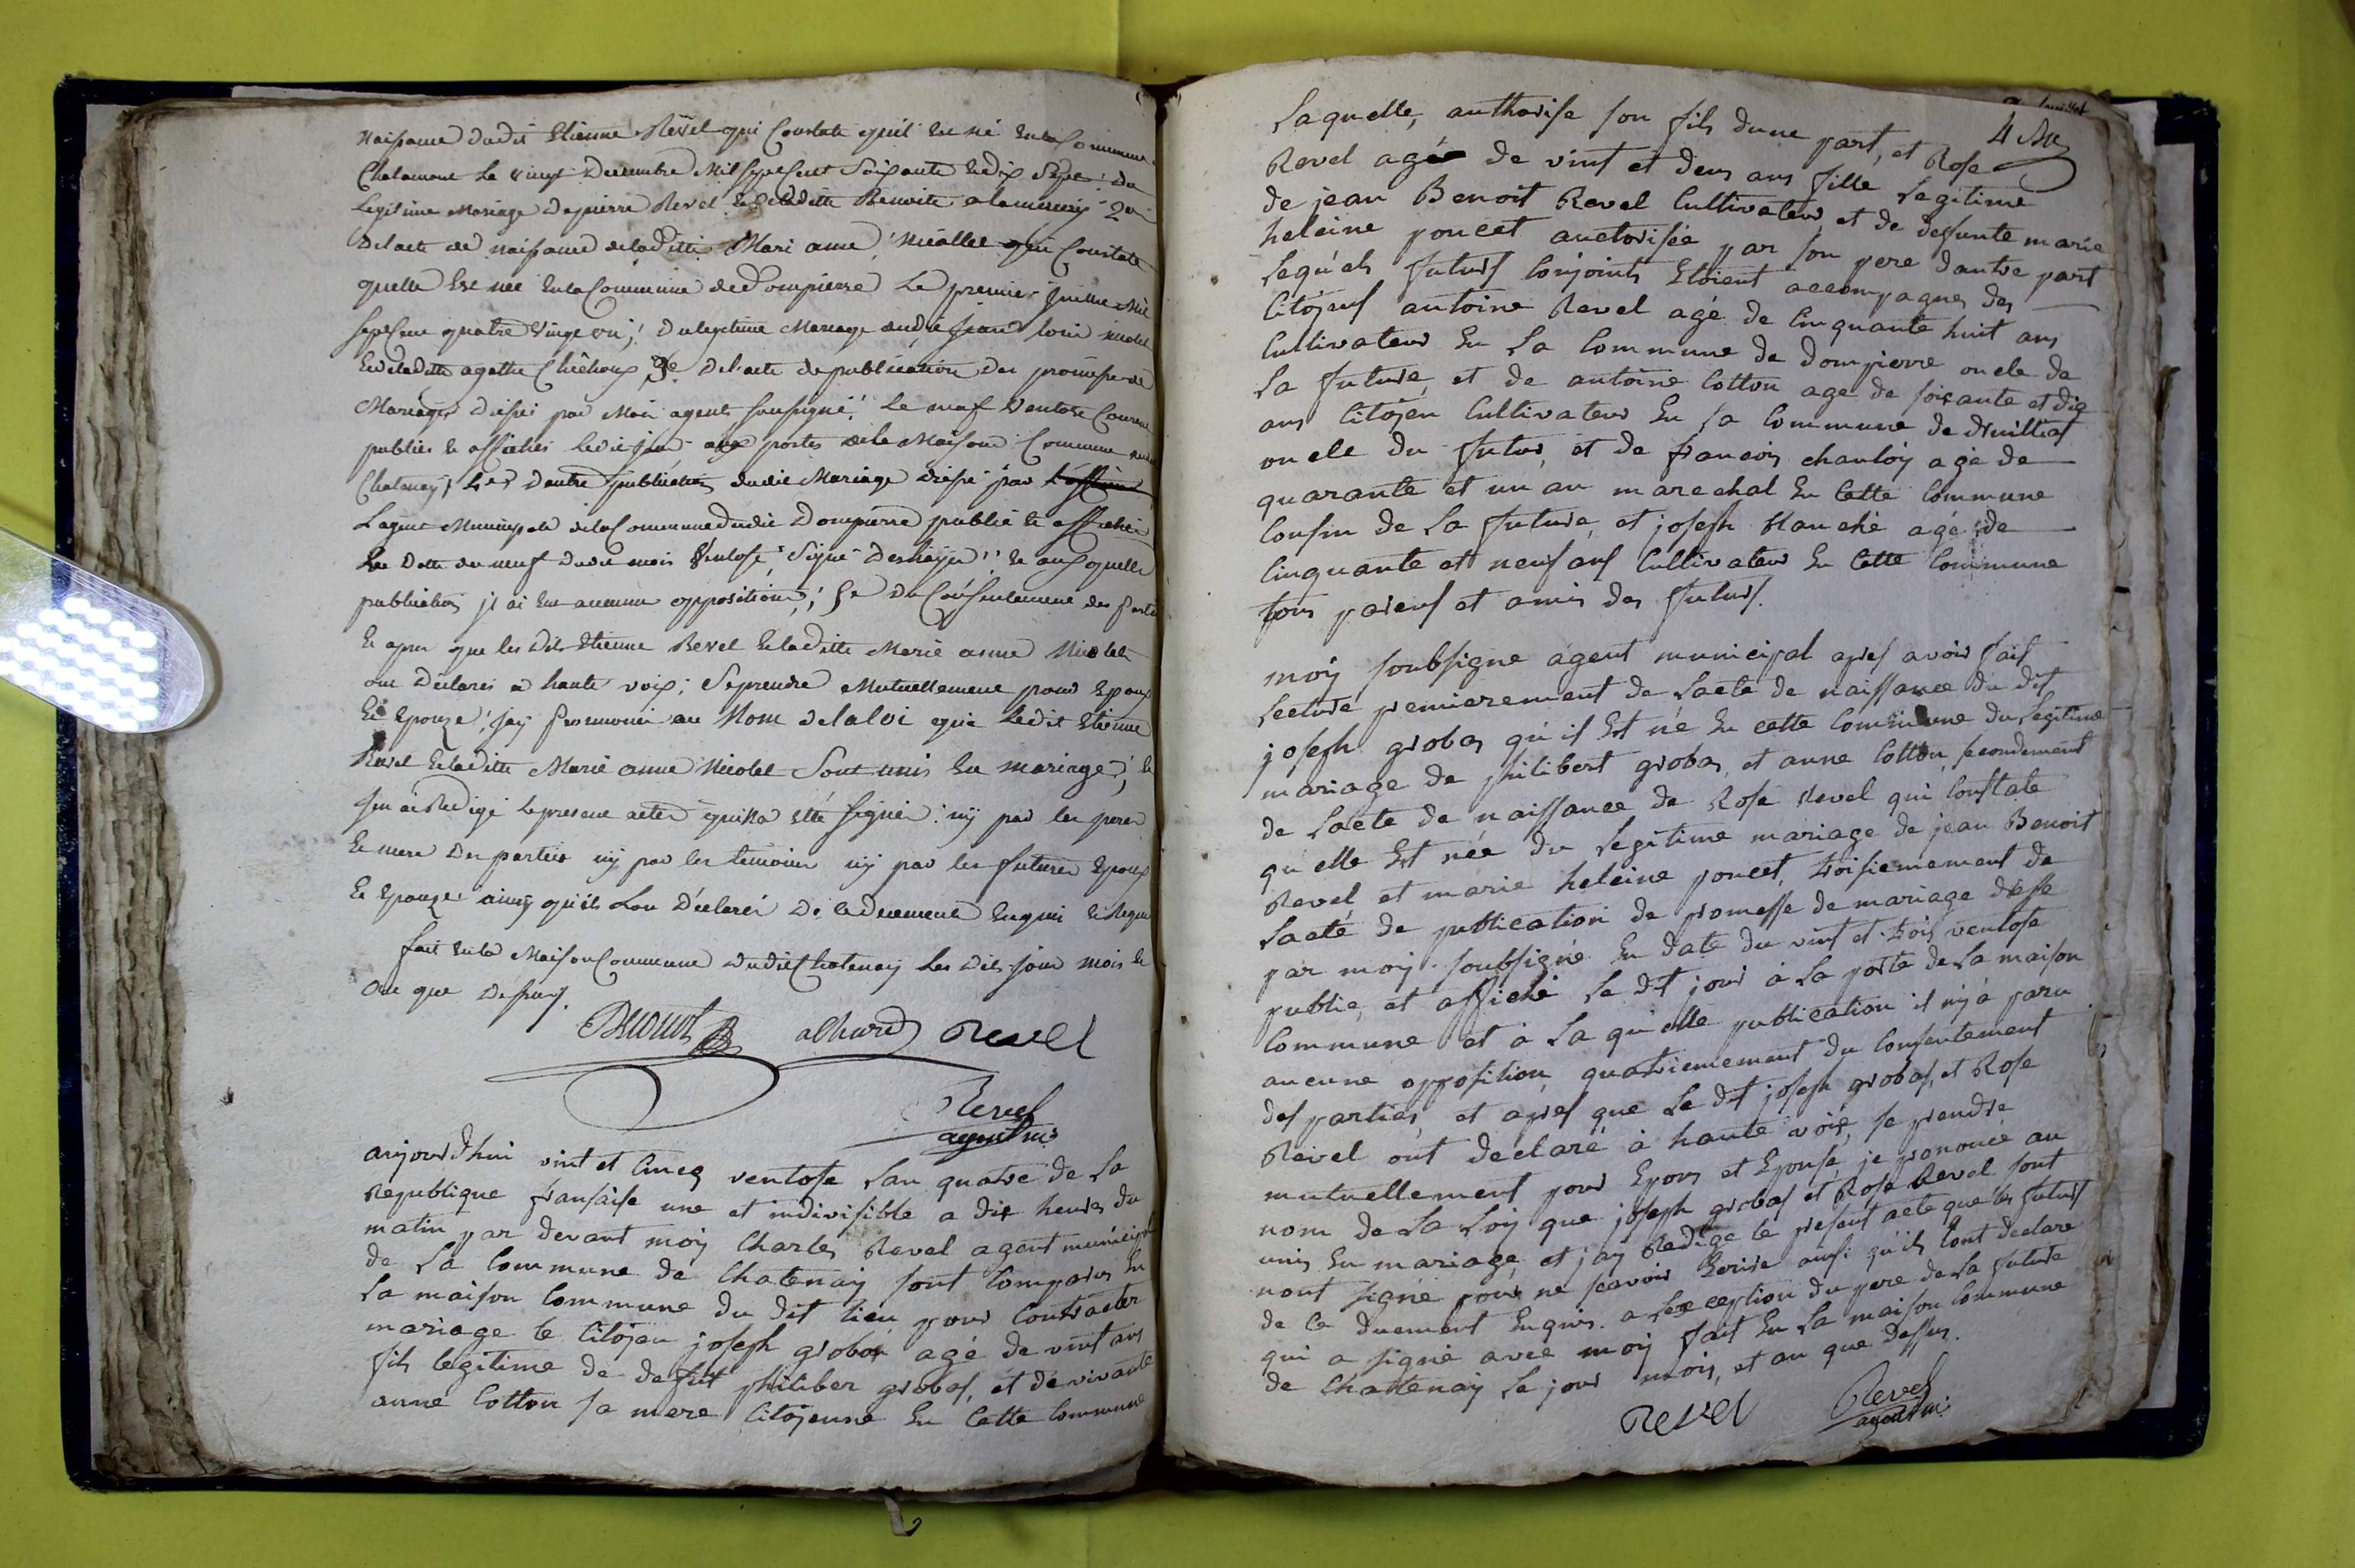 Naissance dudit Etienne Revel qui Constate quil Est né En la Commune
Chalamont Le vingt Decembre Mil Sept Cent Soixante Et dix Sept : du
Legitime Mariage de pierre Revel Et de laditte Benoite 2o
De lacte de naissance de laditte Mari anne Nicollet qui Constate
quelle Est née En la Commune de Dompierre Le premier Juillet Mil
Sept Cent quatre vingt un ; du legitime Mariage dudit Jean loui nicolet
Et de laditte agathe 3e De l'acte de publication des promesse de
Mariages Dréssé par Moi agent soussigné ! Le neuf Ventose Courent
publiés Et affichés ledit jour aux portes de la Maison Commune dudit
Chatenay ; Et d'autre publication dudit Mariage dréssé par
Lagent Municipale de la Commune dudit Dompierre publié Et affiché
En Datte du neuf dudit mois Ventose ; Signé Et auxquelle
publication il ni Eut aucune opposition ; Du Consentement des parties
Et apres que les dits Etienne Revel Et laditte Marie anne Nicolet
ont Déclarés a haute voix ; Se prendre Mutuellement pour Epoux
Et Epouze ; jay prononcé au Nom de la loi que Ledit Etienne
Revel Et laditte Marie anne Nicolet Sont unis En mariage ; Et
jen ai Redigé Le present acte quina été signée : ny par les peres
Et mere Des parties ny par les temoins ny par les futures Epoux
Et Epouze ainsy quils Lon Déclarés De ce duement Enquis Et Requis
fait En la Maison Commune dudit Chatenay Les dits jour mois Et
an que Dessus.
Revel
Revel
agent m:
aujourdhui vint et Cincq ventose Lan quatre de La
Republique fransaise une et indivisible a dix heures du
matin par devant moy Charles Revel agent municipal
de La Commune de Chatenay sont Comparus En
La maison Commune du dit lieu pour Contracter
mariage le Citoyen joseph grobos agé de vint ans
fils legitime de defut philiber grobos, et de vivante
anne Cotton sa mere Citoyenne En Cette Commune
4
Laquelle, authorise son fils dune part, et Rose
Revel agée de vint et deus ans fille Legitime
de jean Benoit Revel Cultivateur, et de defunte marie
heleine poncet auctorisée par son pere dautre part
Lequ'els futurs Conjoints Etoient accompagnes des
Citoyens antoine Revel agé de Cinquante huit ans
Cultivateur En La Commune de Dompierre oncle de
La future, et de antoine Cotton age de soixante et dix
ans Citoyen Cultivateur En sa Commune de druillat
oncle du futur, et de francois chanloy agé de
quarante et un an marechal En Cette Commune
Cousin de La future, et joseph blanché agé de
Cinquante et neuf ans Cultivateur En Cette Commune
tous parens et amis des futurs.
moy soubsigne agent municipal apres avoir fait
Lecture premierement de Lacte de naissance du dit
joseph grobos qu'il Est né En cette Commune du Legitime
mariage de philibert grobos, et anne Cotton, secondement
de Lacte de naissance de Rose Revel qui Constate
qu'elle Est née du Legitime mariage de jean Benoit
Revel et marie heleine poncet, troisiemement de
Lacte de publication de promesse de mariage dresse
par moy soubsigné En date du vint et trois ventose
publie, et affiché Le dit jour à La porte de La maison
Commune et à La qu'elle publication il ny à paru
aucune opposition, quatriemement du Consentement
des parties, et apres que Le dit joseph grobos, et Rose
Revel ont declaré à haute voix, se prendre
mutuellement pour Epous et Epouse, je prononcé au
nom de La Loy que joseph grobos et Rose Revel sont
unis En mariage, et jay Redigé le present acte que les futurs
nont signé pour ne scavoir Ecrire ainsi qu'ils Lont declare
de Ce duement Enquis. a Lexception du pere de La future
qui a signé avec moy fait En La maison Commune
de Chattenay Le jour mois, et an que dessus.
Revel Revel
agent m: